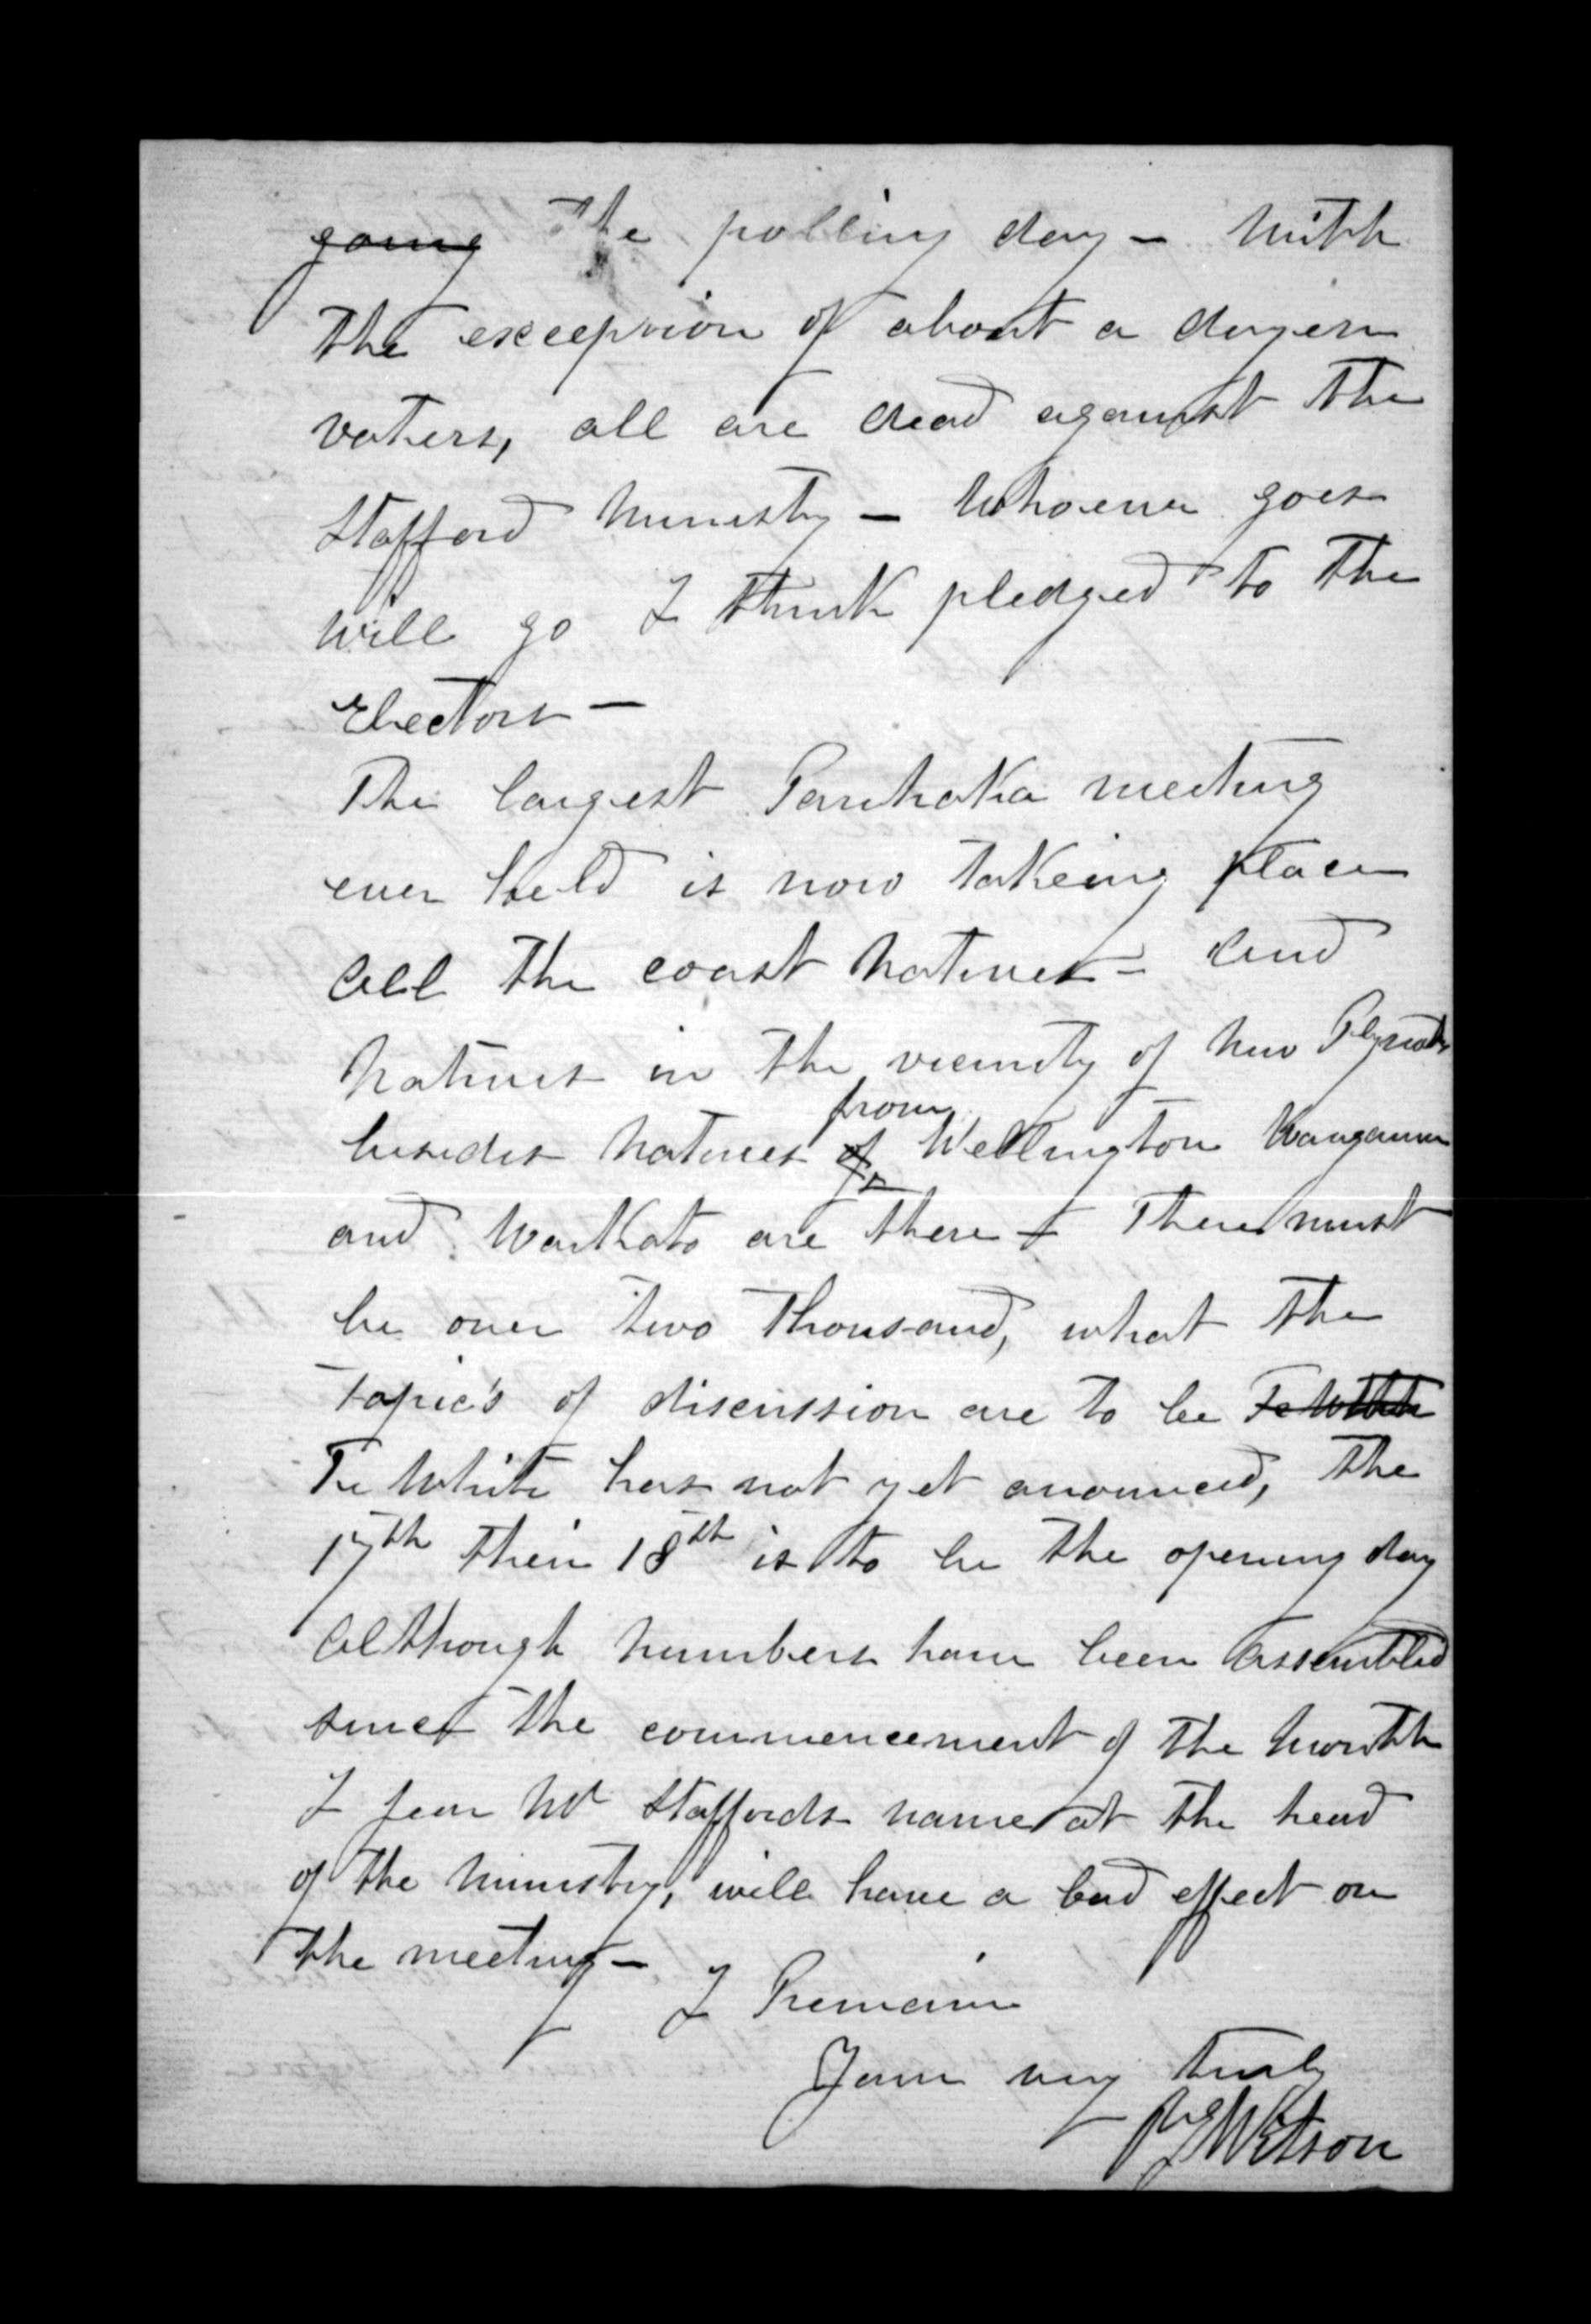 going the polling day – With
the exception of about a dozen
voters, all are dead against the
Stafford Ministry – Whoever goes
will go I think pledged to the
Electors –
The largest Parihaka meeting
ever held is now takeing place
All the coast Natives – and
Natives in the vicinity of New Plymouth
besides Natives of from Wellington Wanganui
and Waikato are there – There must
be over two thousand, what the
topic's of discussion are to be
Te Whiti has not yet anounced, the
17th their 18th is to be the opening day
Although numbers have been assembled
since the commencement of the month
I fear Mr Staffords name at the head
of the Ministry, will have a bad effect on
the meeting –
I Remain
Yours very truly
Wilson